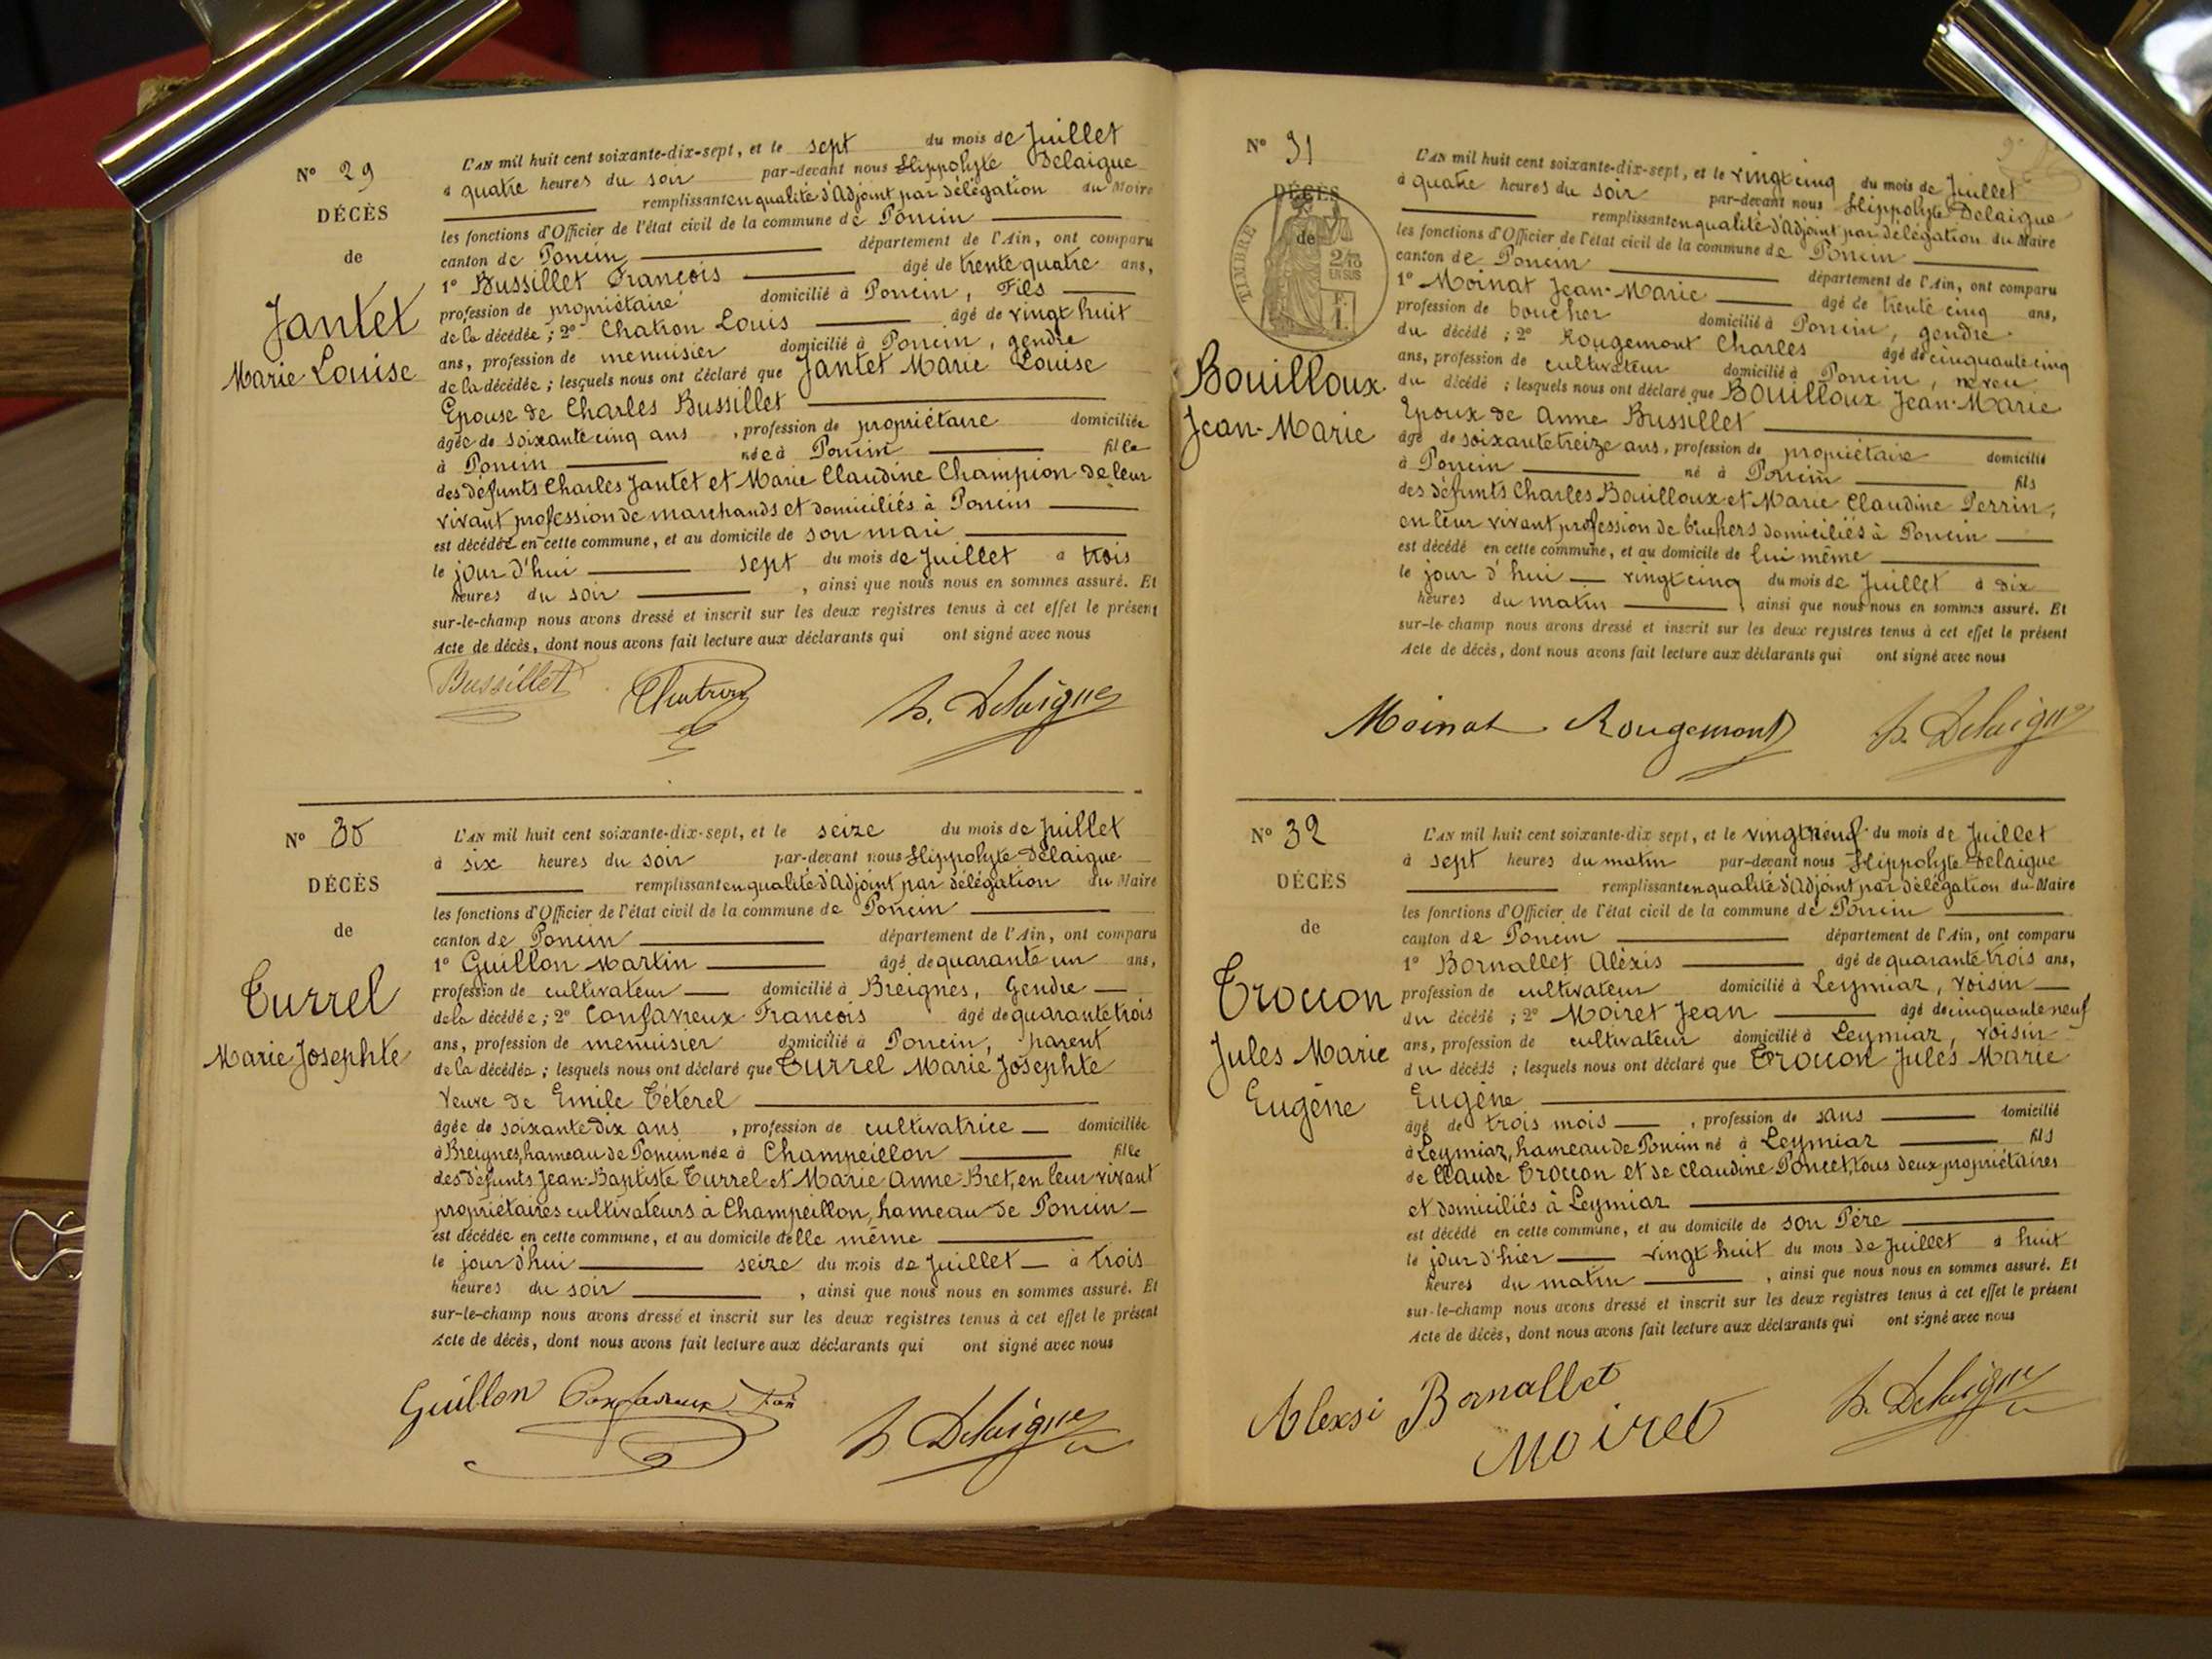 N° 29
DÉCÈS
de
Jantet
Marie Louise
L'AN mil huit cent soixante-dix-sept, et le sept du mois de Juillet
à quatre heures du soir par-devant nous Hippolyte Delaigue
remplissant en qualité d'Adjoint par délégation du Maire
les fonctions d'Officier de l'état civil de la commune de Poncin
canton de Poncin département de l'Ain, ont comparu
1° Bussillet François âgé de trente quatre ans,
profession de propriétaire domicilié à Poncin, Fils
de la décédée ; 2° Chatron Louis âgé de vingt huit
ans, profession de menuisier domicilié à Poncin, gendre
de la décédée ; lesquels nous ont déclaré que Jantet Marie Louise
Epouse de Charles Bussillet
âgée de soixante cinq ans , profession de propriétaire domiciliée
à Poncin née à Poncin fille
des défunts Charles Jantet et Marie Claudine Champion de leur
vivant profession de marchands et domiciliés à Poncin
est décédée en cette commune, et au domicile de son mari
le jour d'hui sept du mois de Juillet à trois
heures du soir , ainsi que nous nous en sommes assuré. Et
sur-le-champ nous avons dressé et inscrit sur les deux registres tenus à cet effet le présent
Acte de décès, dont nous avons fait lecture aux déclarants qui ont signé avec nous
Bussillet Chatron h. Delaigue
N° 30
DÉCÈS
de
Turrel
Marie Josephte
L'AN mil huit cent soixante-dix-sept, et le seize du mois de Juillet
à six heures du soir par-devant nous Hippolyte Delaigue
remplissant en qualité d'Adjoint par délégation du Maire
les fonctions d'Officier de l'état civil de la commune de Poncin
canton de Poncin département de l'Ain, ont comparu
1° Guillon Martin âgé de quarante un ans,
profession de cultivateur domicilié à Breignes, Gendre
de la décédée ; 2° Confavreux François âgé de quarante trois
ans, profession de menuisier domicilié à Poncin, parent
de la décédée ; lesquels nous ont déclaré que Turrel Marie Josephte
Veuve de Emile Téterel
âgée de soixante dix ans , profession de cultivatrice domiciliée
à Breignes, hameau de Poncin née à Champeillon fille
des défunts Jean-Baptiste Turrel et Marie Anne Bret, en leur vivant
propriétaires cultivateurs à Champeillon, hameau de Poncin
est décédée en cette commune, et au domicile d'elle même
le jour d'hui seize du mois de Juillet à trois
heures du soir , ainsi que nous nous en sommes assuré. Et
sur-le-champ nous avons dressé et inscrit sur les deux registres tenus à cet effet le présent
Acte de décès, dont nous avons fait lecture aux déclarants qui ont signé avec nous
Guillon Confavreux h Delaigue
N° 31
DÉCÈS
de
TIMBRE
2/10
EN SUS
Bouilloux
Jean-Marie
L'AN mil huit cent soixante-dix-sept, et le vingt cinq du mois de Juillet
à quatre heures du soir par-devant nous Hippolyte Delaigue
remplissant en qualité d'Adjoint par délégation du Maire
les fonctions d'Officier de l'état civil de la commune de Poncin
canton de Poncin département de l'Ain, ont comparu
1° Moinat Jean-Marie âgé de trente cinq ans,
profession de boucher domicilié à Poncin, gendre
du décédé ; 2° Rougemont Charles âgé de cinquante cinq
ans, profession de cultivateur domicilié à Poncin, neveu
du décédé ; lesquels nous ont déclaré que Bouilloux Jean-Marie
Epoux de Anne Bussillet
âgé de soixante treize ans, profession de propriétaire domicilié
à Poncin né à Poncin fils
des défunts Charles Bouilloux et Marie Claudine Perrin,
en leur vivant profession de bouchers domiciliés à Poncin
est décédé en cette commune, et au domicile de lui même
le jour d'hui vingt cinq du mois de Juillet à dix
heures du matin , ainsi que nous nous en sommes assuré. Et
sur-le-champ nous avons dressé et inscrit sur les deux registres tenus à cet effet le présent
Acte de décès, dont nous avons fait lecture aux déclarants qui ont signé avec nous
Moinat Rougemont h. Delaigue
N° 32
DÉCÈS
de
Troccon
Jules Marie
Eugène
L'AN mil huit cent soixante-dix sept, et le vingt neuf du mois de Juillet
à sept heures du matin par-devant nous Hippolyte Delaigue
remplissant en qualité d'Adjoint par délégation du Maire
les fonctions d'Officier de l'état civil de la commune de Poncin
canton de Poncin département de l'Ain, ont comparu
1° Bornallet Aléxis âgé de quarante trois ans,
profession de cultivateur domicilié à Leymiaz, voisin
du décédé ; 2° Moiret Jean âgé de cinquante neuf
ans, profession de cultivateur domicilié à Leymiaz, voisin
du décédé ; lesquels nous ont déclaré que Troccon Jules Marie
Eugène
âgé de trois mois , profession de sans domicilié
à Leymiaz, hameau de Poncin né à Leymiaz fils
de Claude Troccon et de Claudine Poncet, tous deux propriétaires
et domiciliés à Leymiaz
est décédé en cette commune, et au domicile de son Père
le jour d'hier vingt huit du mois de Juillet à huit
heures du matin , ainsi que nous nous en sommes assuré. Et
sur-le-champ nous avons dressé et inscrit sur les deux registres tenus à cet effet le présent
Acte de décès, dont nous avons fait lecture aux déclarants qui ont signé avec nous
Alexsi Bornallet h. Delaigue
Moiret